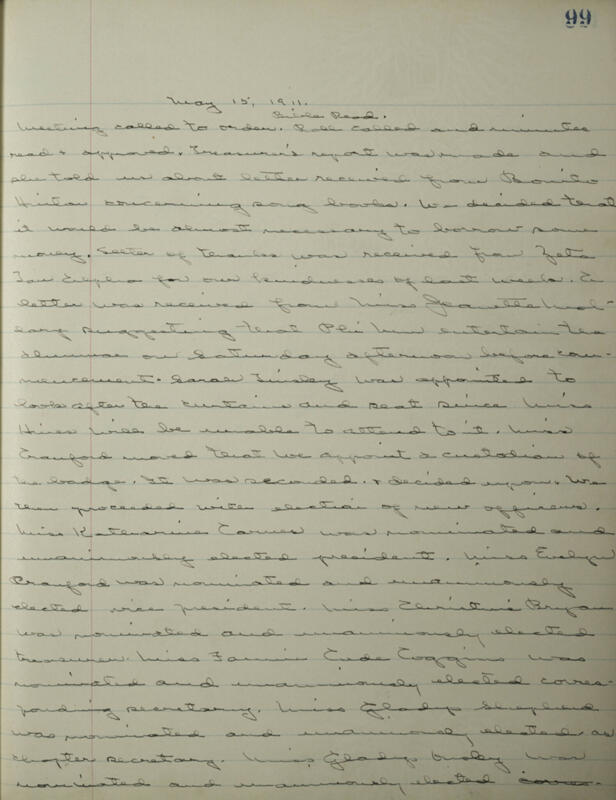 99
May 15, 1911.
Bible Read.
Meeting called to order. Roll called and minutes
read + approved. Treasurer's report was made and
she told us about letter received from
concerning song books. We decided that
it would be almost necessary to borrow some
money. Letter of thanks was received from Zeta
Tau Alpha for our kindnesses of last week. A
letter was received from Miss Jeanette
suggesting that Phi Mu entertain the
Alumnae on Saturday afternoon before com-
mencement. Sarah Tinsley was appointed to
look after the curtains and seat since Miss
Hines will be unable to attend to it. Miss
Cranford moved that we appoint a custodian of
the badge. It was seconded. + decided upon. We
then proceeded with election of new officers.
Miss Katharine Carnes was nominated and
unanimously elected president. Miss Evelyn
Cranford was nominated and unanimously
elected vice president. Miss Christine Bryan
was nominated and unanimously elected
treasurer. Miss Fannie Coggins was
nominated and unanimously elected corres-
ponding secretary. Miss Gladys Shepherd
was nominated and unanimously elected as
chapter secretary. Miss Gladys was
nominated and unanimously elected